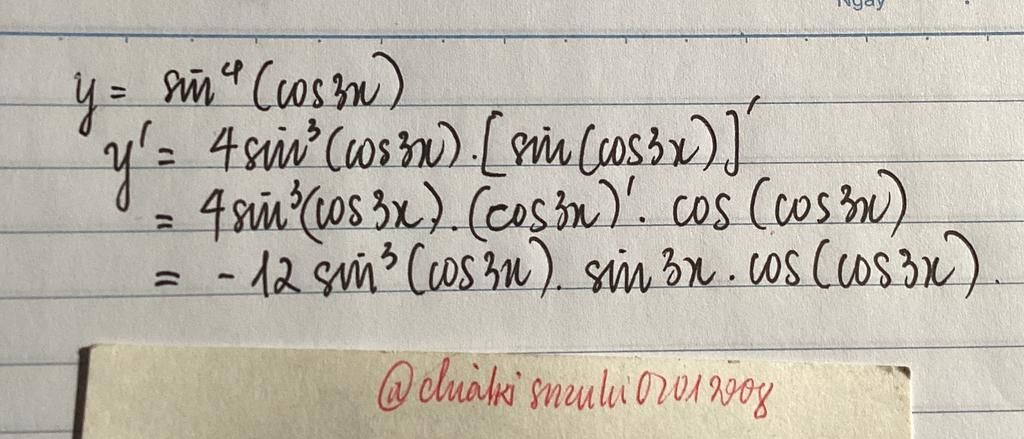 Ngày
y = sin⁴(cos3x)
y' = 4sin³(cos3x).[sin(cos3x)]'
= 4sin³(cos3x).(cos3x)'. cos(cos3x)
= -12 sin³(cos3x). sin3x. cos(cos3x).